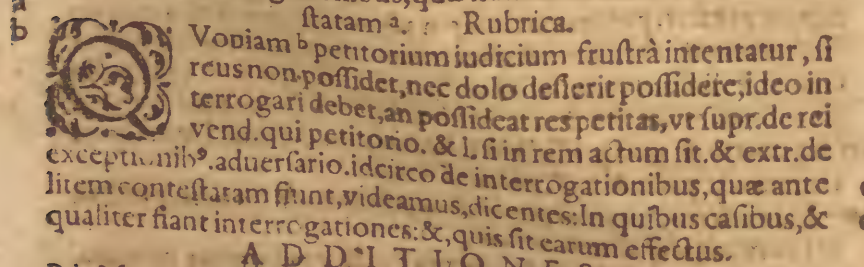 b
ſtatam a. Rubrica.
QVoniam b petitorium iudicium fruſtrà intentatur, ſi
reus non poſſidet, nec dolo deſierit poſſidere, ideo in
terrogari debet, an poſſideat res petitas, vt ſupr. de rei
vend. qui petitorio. & l. ſi in rem actum ſit. & extr. de
exceptionib⁹. aduerſario. idcirco de interrogationibus, quæ ante
litem conteſtatam fiunt, videamus, dicentes: In quibus caſibus, &
qualiter fiant interrogationes: &, quis ſit earum effectus.
ADDITIONES